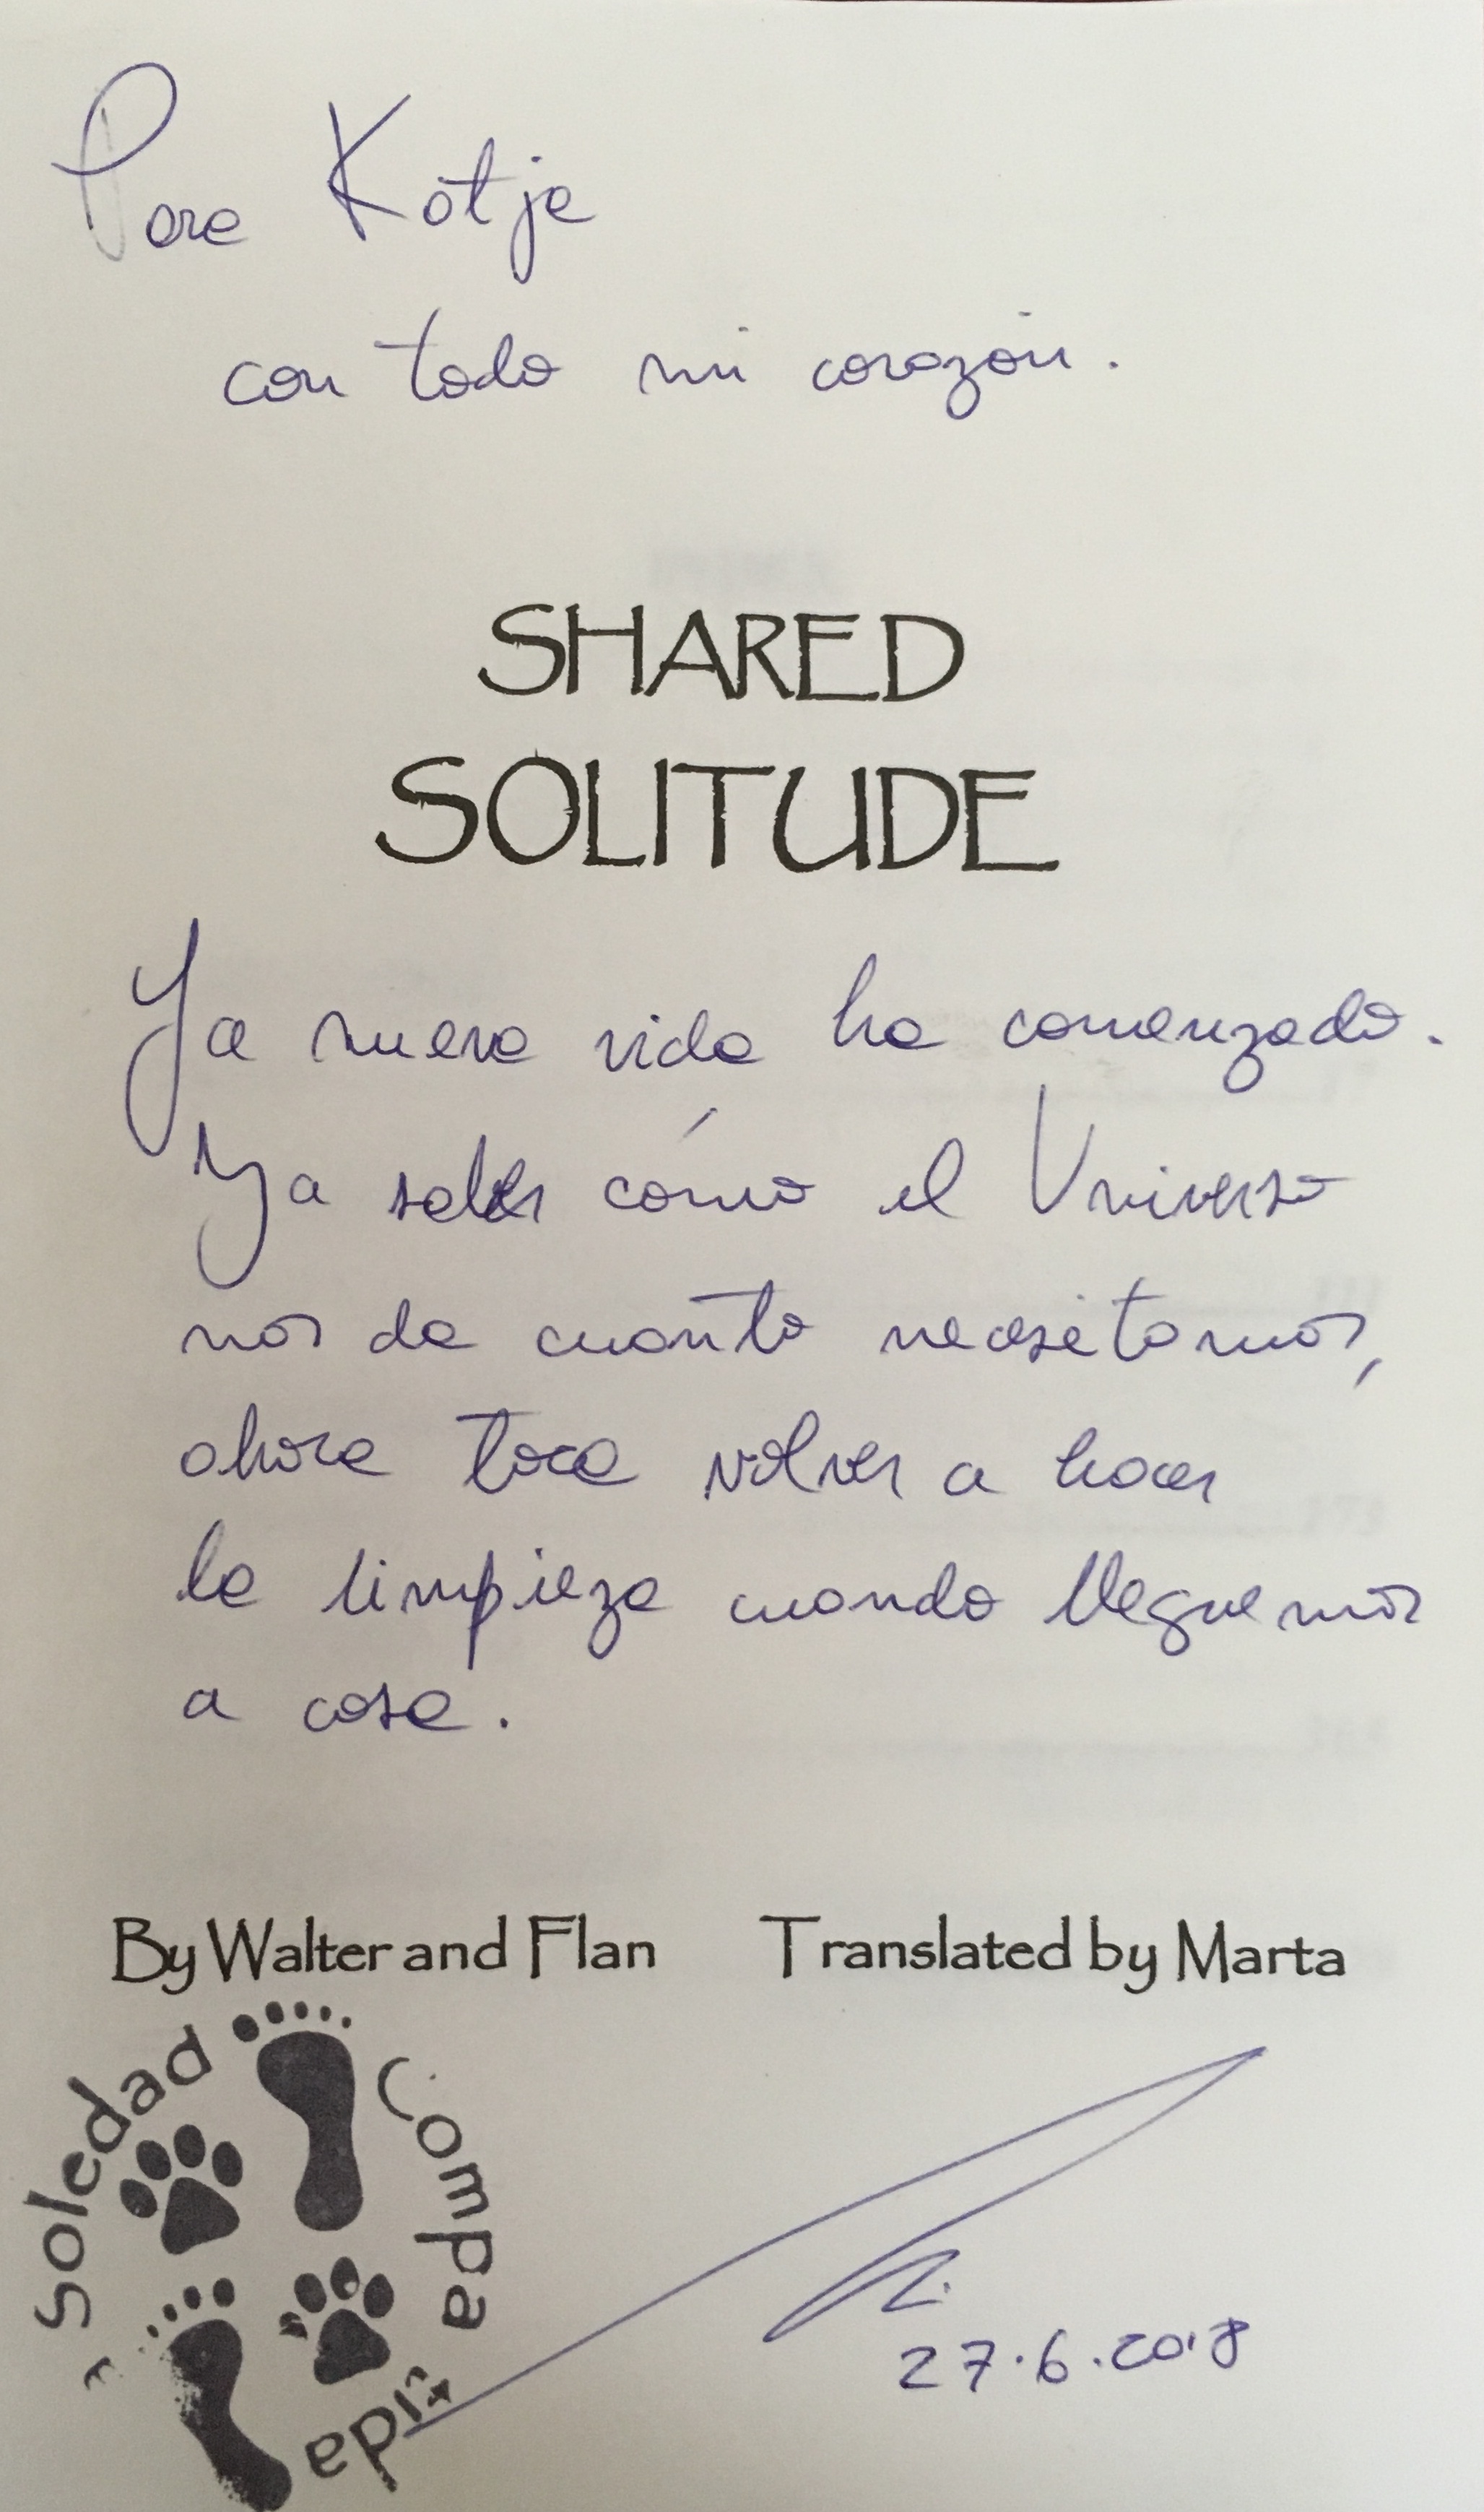 Para Katje
con todo mi corazón.
SHARED
SOLITUDE
Ya nueva vida ha comenzado.
Ya sabes cómo el Universo
nos da cuanto necesitamos,
ahora toca volver a hacer
la limpieza cuando lleguemos
a casa.
By Walter and Flan Translated by Marta
Soledad Compartida
27.6.2018